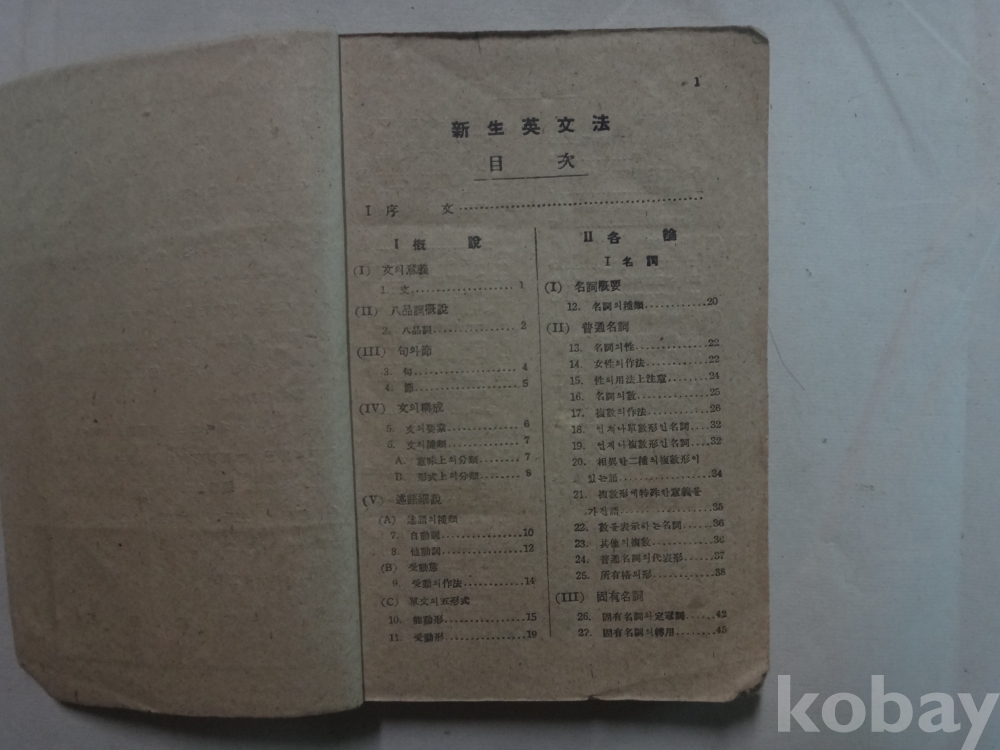 1
新生英文法
目 次
I 序 文
I 概 說
(I) 文의意義
1. 文 1
(II) 八品詞槪說
2. 八品詞 2
(III) 句와節
3. 句 4
4. 節 5
(IV) 文의構成
5. 文의要素 6
6. 文의種類 7
A. 意味上의分類 7
B. 形式上의分類 8
(V) 述語細說
(A) 述語의種類
7. 自動詞 10
8. 他動詞 12
(B) 受動態
9. 受動의作法 14
(C) 單文의五形式
10. 能動形 15
11. 受動形 19
II 各 論
I 名 詞
(I) 名詞槪要
12. 名詞의種類 20
(II) 普通名詞
13. 名詞의性 22
14. 女性의作法 22
15. 性의用法上注意 24
16. 名詞의數 25
17. 複數의作法 26
18. 언제나單數形인名詞 32
19. 언제나複數形인名詞 32
20. 相異한二種의複數形이
있는語 34
21. 複數形에特殊한意義를
가진語 35
22. 數를表示하는名詞 36
23. 其他의複數 36
24. 普通名詞의代表形 37
25. 所有格의形 38
(III) 固有名詞
26. 固有名詞와定冠詞 42
27. 固有名詞의轉用 45
kobay